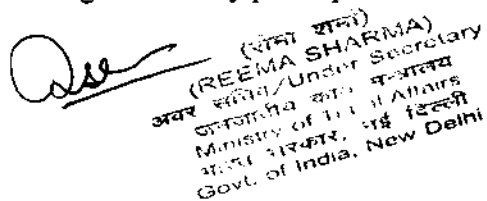 (रीमा शर्मा)
(REEMA SHARMA)
अवर सचिव/Under Secretary
जनजातीय कार्य मंत्रालय
Ministry of Tribal Affairs
भारत सरकार, नई दिल्ली
Govt. of India, New Delhi